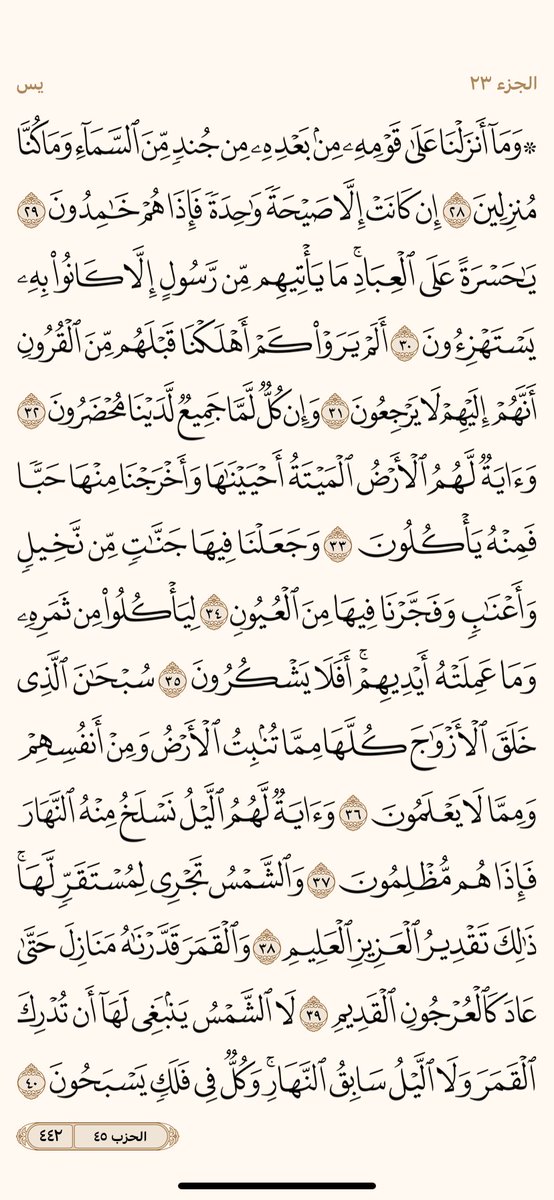 الجزء ٢٣
يس
۞ وَمَآ أَنزَلۡنَا عَلَىٰ قَوۡمِهِۦ مِنۢ بَعۡدِهِۦ مِن جُندٖ مِّنَ ٱلسَّمَآءِ وَمَا كُنَّا
مُنزِلِينَ ٢٨ إِن كَانَتۡ إِلَّا صَيۡحَةٗ وَٰحِدَةٗ فَإِذَا هُمۡ خَٰمِدُونَ ٢٩
يَٰحَسۡرَةً عَلَى ٱلۡعِبَادِۚ مَا يَأۡتِيهِم مِّن رَّسُولٍ إِلَّا كَانُواْ بِهِۦ
يَسۡتَهۡزِءُونَ ٣٠ أَلَمۡ يَرَوۡاْ كَمۡ أَهۡلَكۡنَا قَبۡلَهُم مِّنَ ٱلۡقُرُونِ
أَنَّهُمۡ إِلَيۡهِمۡ لَا يَرۡجِعُونَ ٣١ وَإِن كُلّٞ لَّمَّا جَمِيعٞ لَّدَيۡنَا مُحۡضَرُونَ ٣٢
وَءَايَةٞ لَّهُمُ ٱلۡأَرۡضُ ٱلۡمَيۡتَةُ أَحۡيَيۡنَٰهَا وَأَخۡرَجۡنَا مِنۡهَا حَبّٗا
فَمِنۡهُ يَأۡكُلُونَ ٣٣ وَجَعَلۡنَا فِيهَا جَنَّٰتٖ مِّن نَّخِيلٖ
وَأَعۡنَٰبٖ وَفَجَّرۡنَا فِيهَا مِنَ ٱلۡعُيُونِ ٣٤ لِيَأۡكُلُواْ مِن ثَمَرِهِۦ
وَمَا عَمِلَتۡهُ أَيۡدِيهِمۡۚ أَفَلَا يَشۡكُرُونَ ٣٥ سُبۡحَٰنَ ٱلَّذِي
خَلَقَ ٱلۡأَزۡوَٰجَ كُلَّهَا مِمَّا تُنۢبِتُ ٱلۡأَرۡضُ وَمِنۡ أَنفُسِهِمۡ
وَمِمَّا لَا يَعۡلَمُونَ ٣٦ وَءَايَةٞ لَّهُمُ ٱلَّيۡلُ نَسۡلَخُ مِنۡهُ ٱلنَّهَارَ
فَإِذَا هُم مُّظۡلِمُونَ ٣٧ وَٱلشَّمۡسُ تَجۡرِي لِمُسۡتَقَرّٖ لَّهَاۚ
ذَٰلِكَ تَقۡدِيرُ ٱلۡعَزِيزِ ٱلۡعَلِيمِ ٣٨ وَٱلۡقَمَرَ قَدَّرۡنَٰهُ مَنَازِلَ حَتَّىٰ
عَادَ كَٱلۡعُرۡجُونِ ٱلۡقَدِيمِ ٣٩ لَا ٱلشَّمۡسُ يَنۢبَغِي لَهَآ أَن تُدۡرِكَ
ٱلۡقَمَرَ وَلَا ٱلَّيۡلُ سَابِقُ ٱلنَّهَارِۚ وَكُلّٞ فِي فَلَكٖ يَسۡبَحُونَ ٤٠
الحزب ٤٥ ٤٤٢